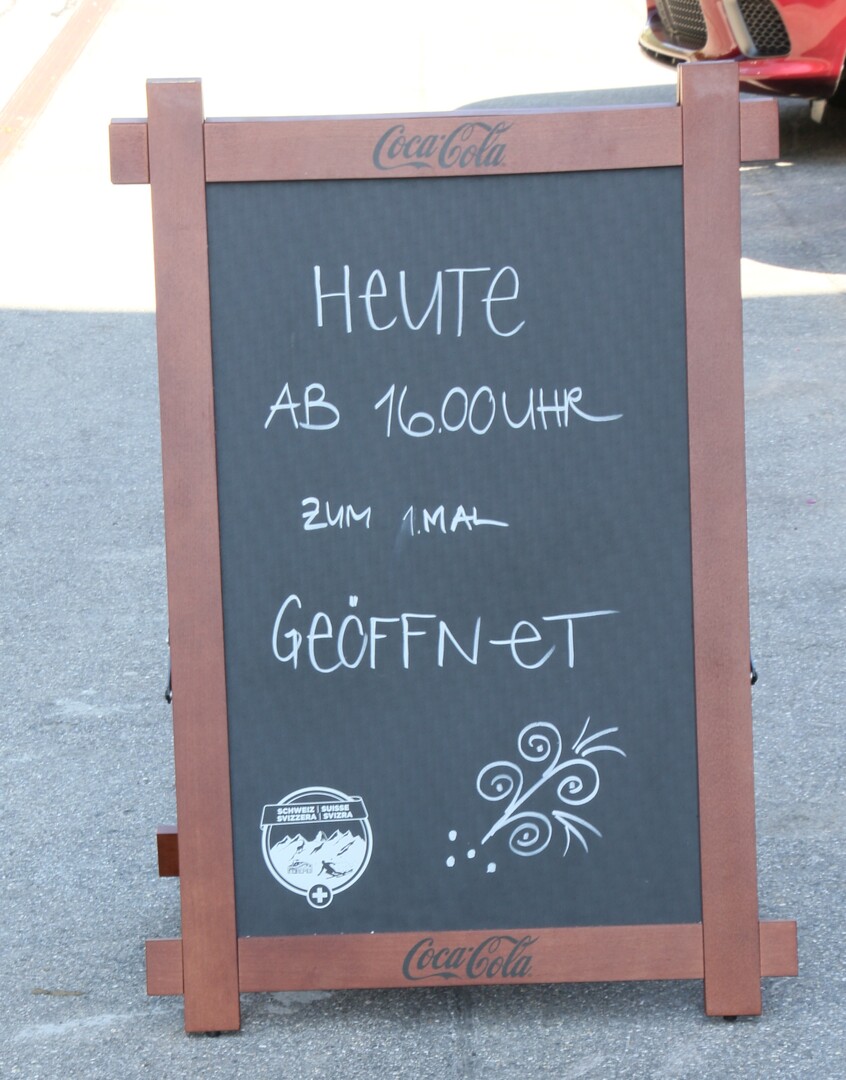 Coca-Cola
HeUTe
AB 16.00 UHR
ZUM 1.MAL
GeÖFFNeT
SCHWEIZ | SUISSE
SVIZZERA | SVIZRA
Coca-Cola